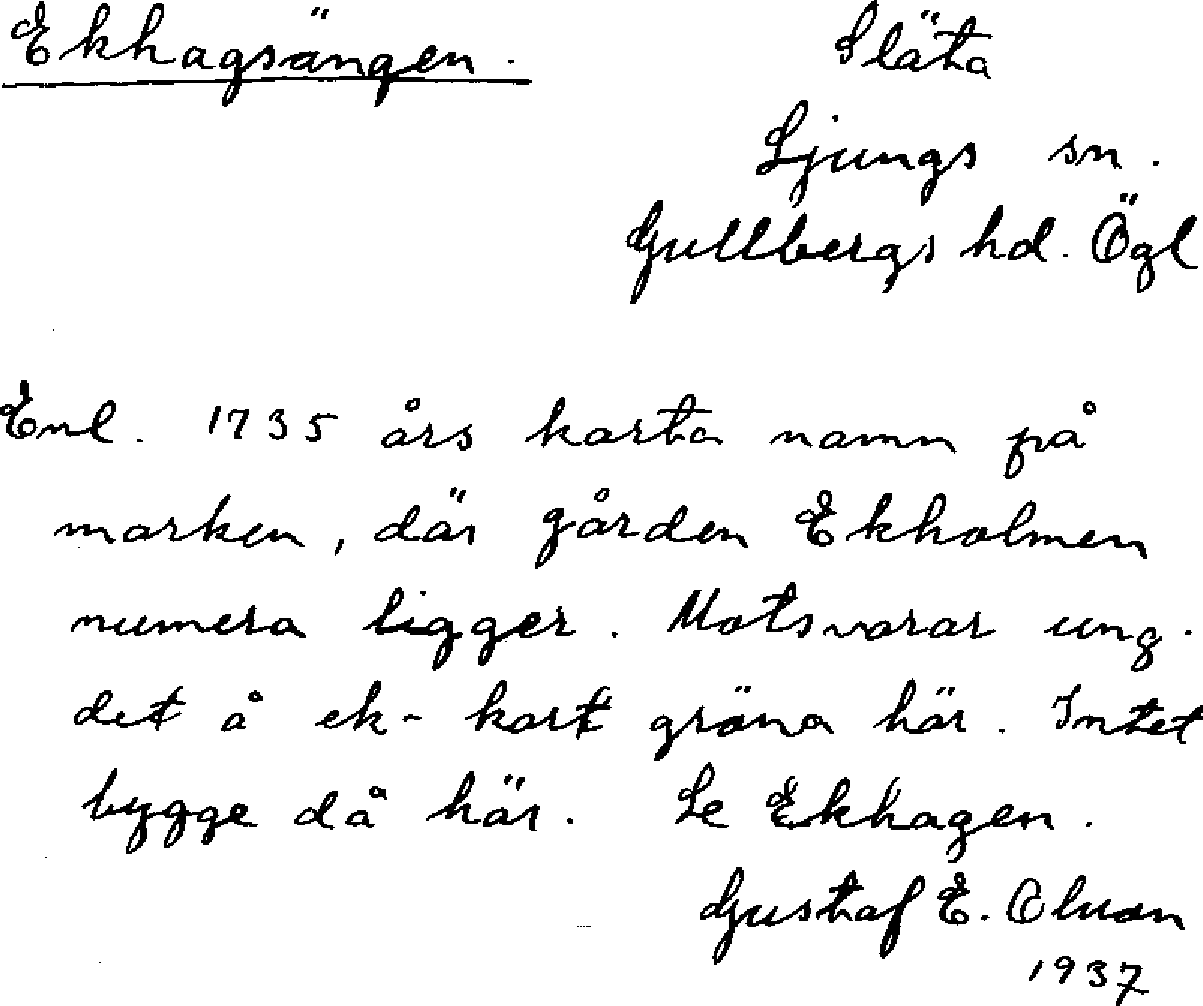 Ekhagsängen.
Släta
Ljungs sn.
Gullbergs hd. Ögl
Enl. 1735 års karta namn på
marken, där gården Ekholmen
numera ligger. Motsvarar ung.
det å ek-kart gröna här. Intet
bygge då här. Se Ekhagen.
Gustaf E.
1937